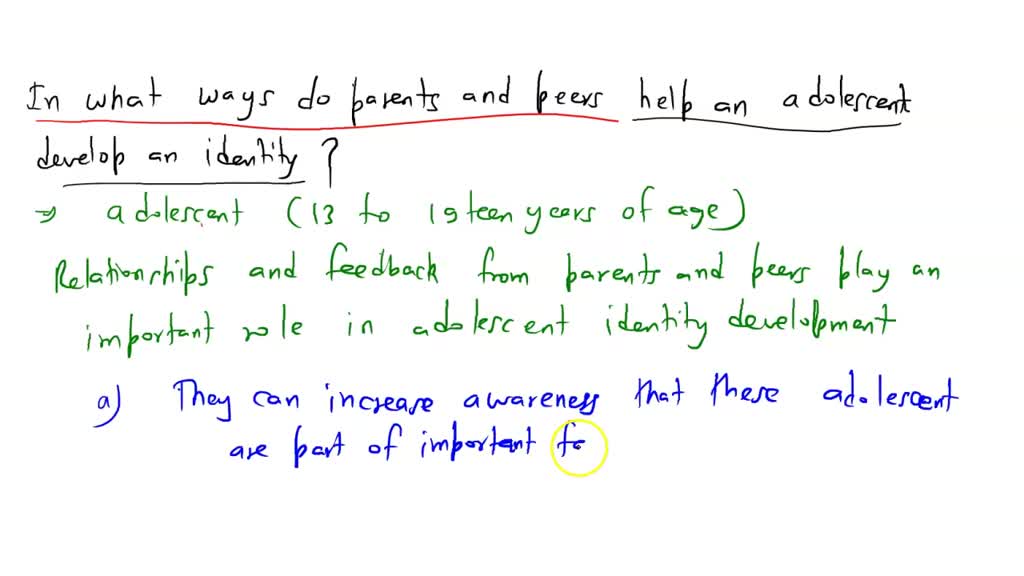 In what ways do parents and peers help an adolescent
develop an identity?
⇒ adolescent (13 to 19teen years of age)
Relationships and feedback from parents and peers play an
important role in adolescent identity development
a) They can increase awareness that these adolescent
are part of important fa